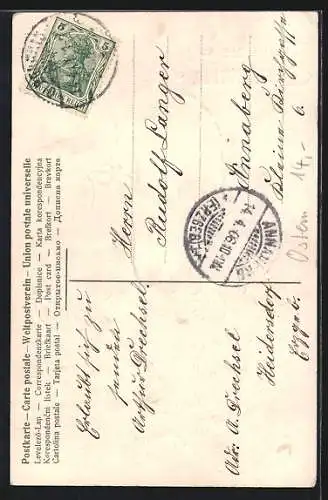 Postkarte – Carte postale – Weltpostverein – Union postale universelle
Levelező-Lap – Correspondenzkarte – Dopisnice – Karta korespondencyjna
Korespondenční lístek – Briefkaart – Post card – Brefkort – Brevkort
Cartolina postale – Tarjeta postal – Открытое письмо – Дописна карта
5 5
Herrn
Rudolf Langer
Annaberg
Kleine
6.
ANNABERG
14.4.06.10-11V.
(ERZGEB.)
Ostern
14,-
Erlaubt sich zu
senden
Arthur Drechsel.
Adr. A. Drechsel
Heidersdorf
Erzgeb.